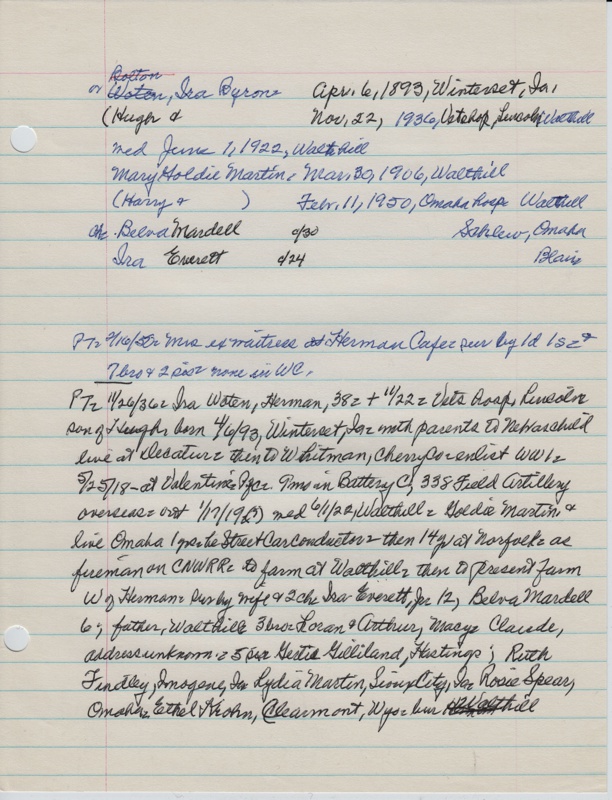 Bolton
or Woten, Ira Byron= Apr. 6, 1893, Winterset, Ia,
(Hugh & Nov. 22, 1936, Vetshop, Lincoln Walthill
med June 1, 1922, Walthill
Mary Goldie Martin= Mar. 30, 1906, Walthill
(Harry & ) Feb. 11, 1950, Omaha hosp= Walthill
ch: Belva Mardell o/30 Omaha
Ira Everett o/24 Blair
PT= Mrs ex waitress at Herman Cafe= sur by 1d 1s= &
7 bro & 2 sis= none in WC.
PT= 11/26/36= Ira Woten, Herman, 38= + 11/22= Vets hosp, Lincoln
son of Hugh, born 4/6/93, Winterset, Ia= with parents to Neb as child
live at Decatur= then to Whitman, Cherry Co= enlist WW1=
5/25/18- at Valentine= Pfc= 9 mo in Battery C, 338 Field Artillery
overseas= out 1/17/19(?) med 6/1/22, Walthill= Goldie Martin, &
live Omaha 1 yr= he Street Car conductor= then 14 yr at Norfolk= as
fireman on CNWRR= to farm at Walthill= then to present farm
W of Herman= sur by wife & 2 ch= Ira Everett, Jr 12, Belva Mardell
6; father, Walthill= 3 bro= Loran & Arthur, Macy= Claude,
address unknown= 5 sis= Gertie Gilliland, Hastings; Ruth
Findley, Imogene, Ia= Lydia Martin, Sioux City, Ia= Rosie Spear,
Omaha= Ethel Krohn, Clearmont, Wyo= bur Walthill